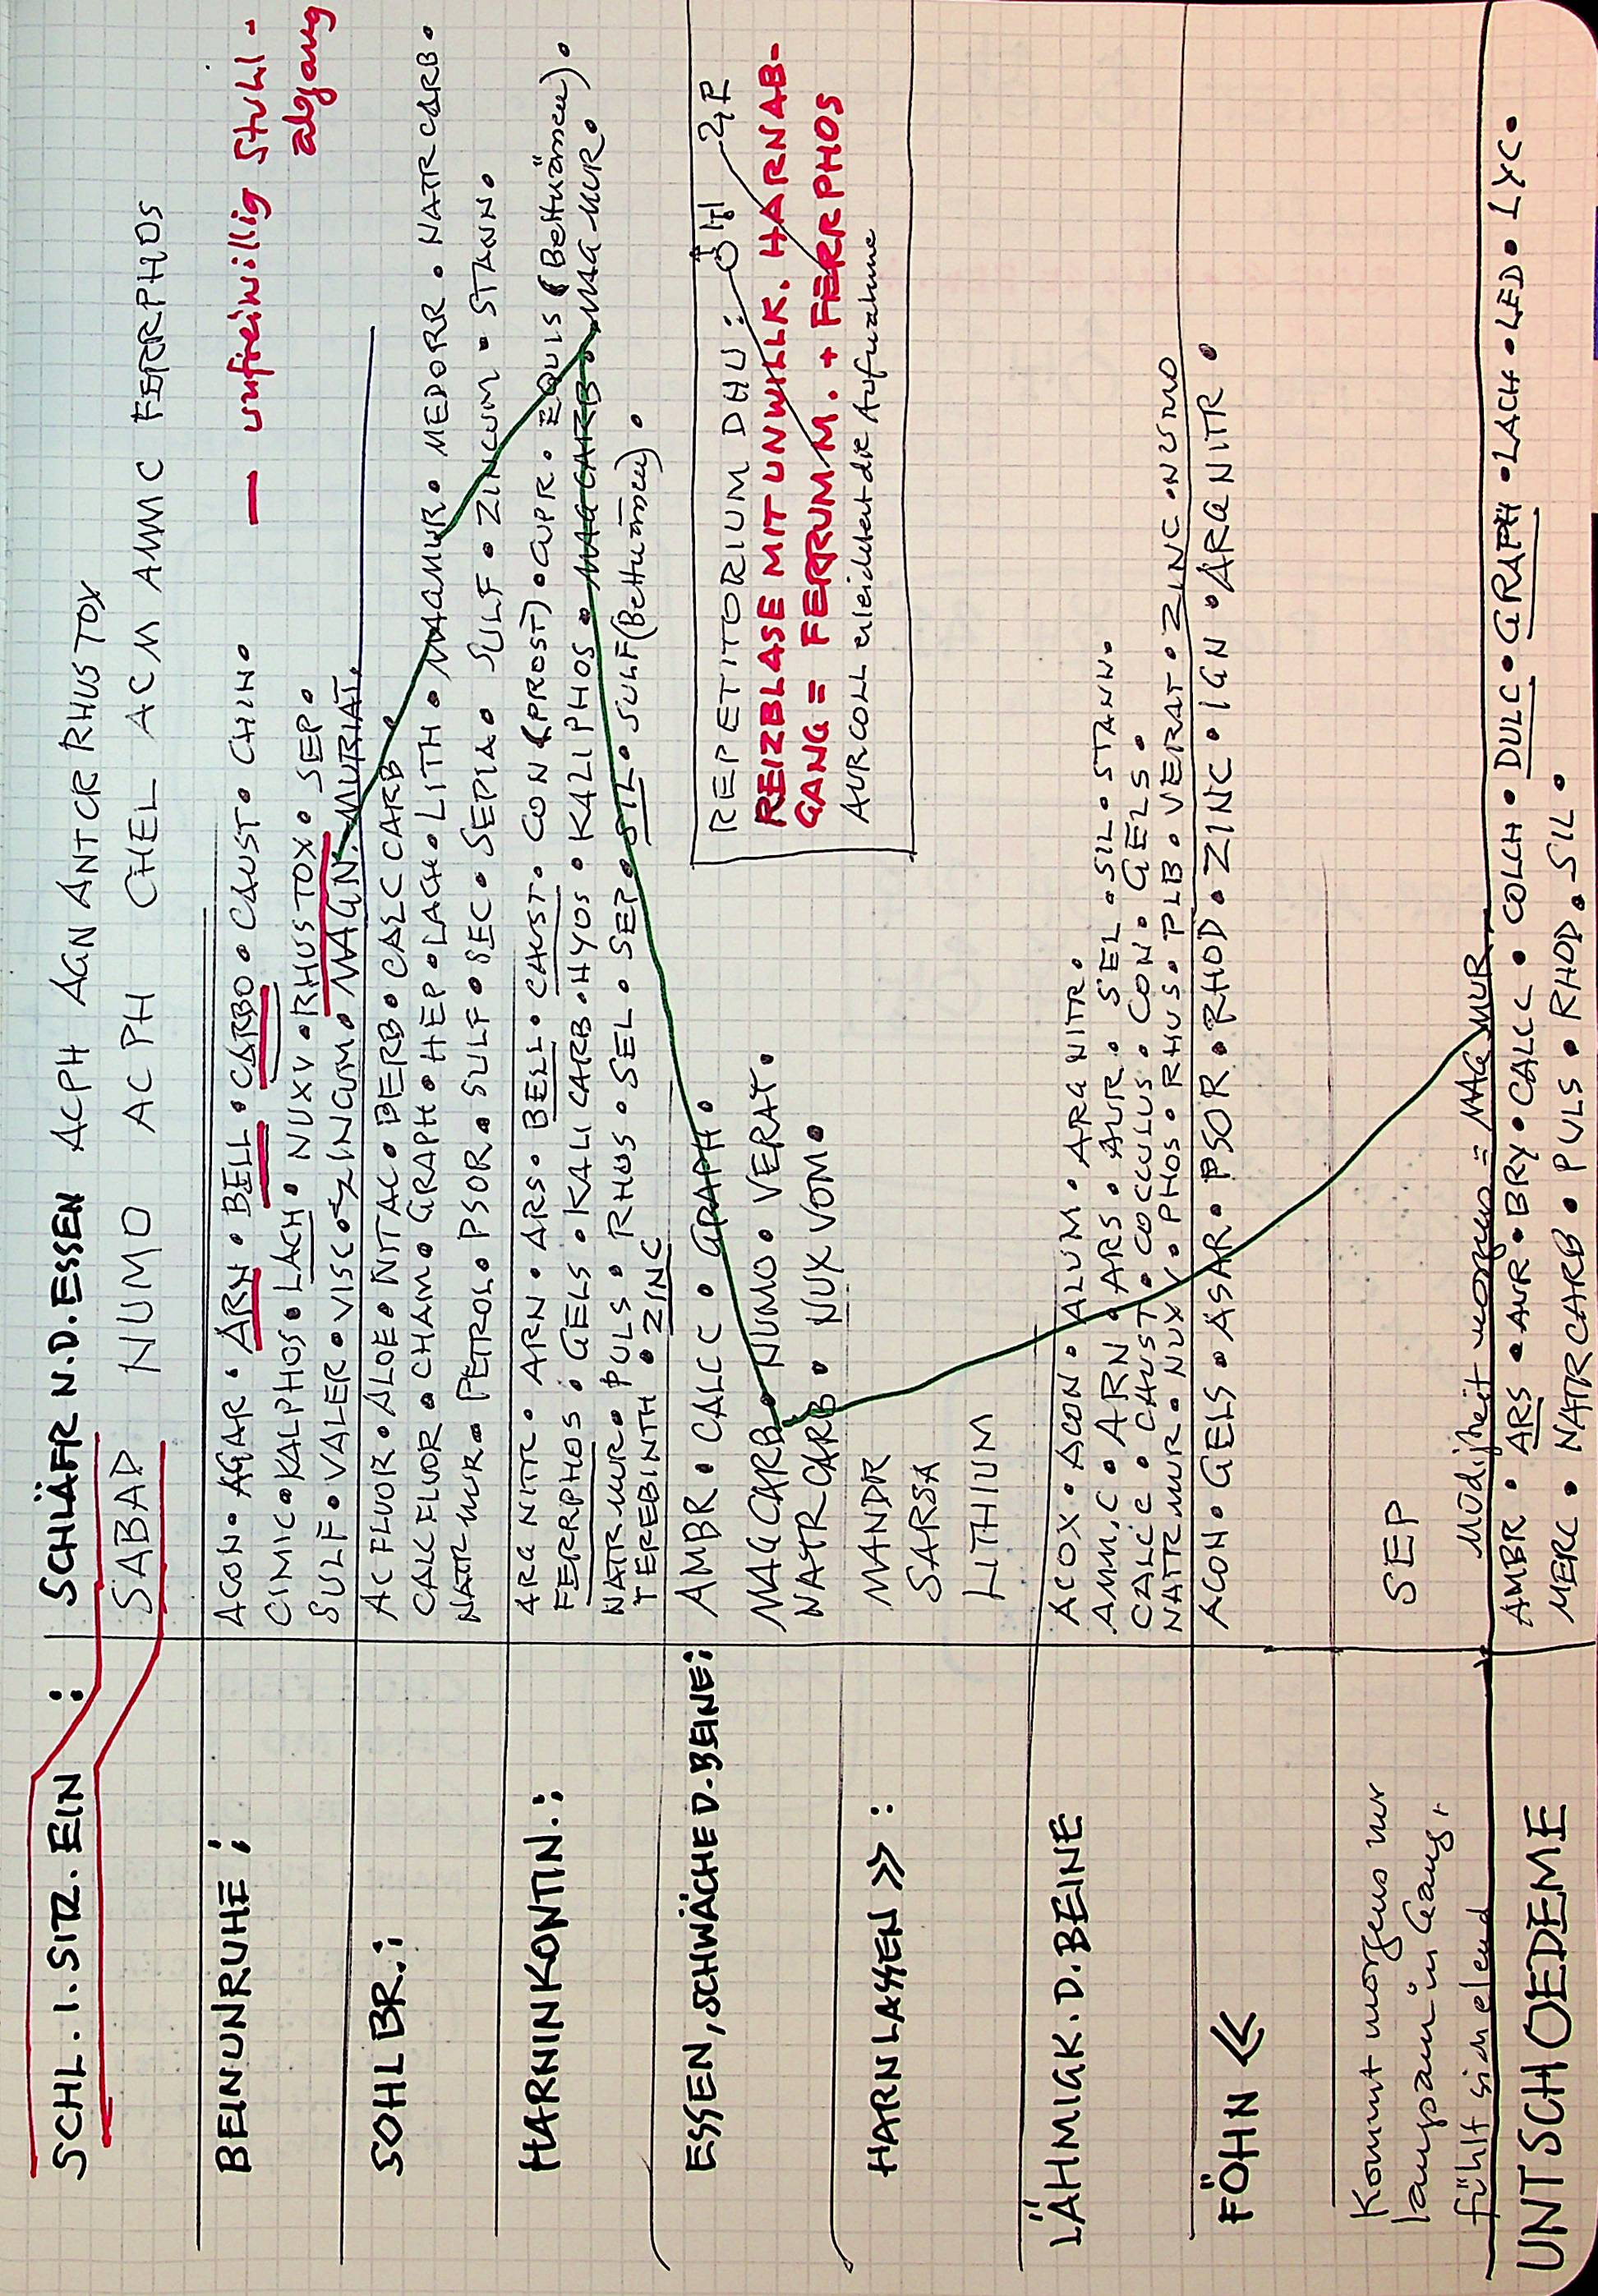 SCHL. I. SITZ. EIN : SCHLÄFR N.D. ESSEN ACPH AGN ANTCR RHUSTOX
SABAD NUMO ACPH CHEL ACM AMMC FERRPHOS
BEINUNRUHE : ACON • AGAR • ARN • BELL • CARBO • CAUST • CHIN •
— unfreiwillig Stuhl-
abgang
CIMIC • KALPHOS • LACH • NUXV • RHUSTOX • SEP •
SULF • VALER • VISC • ZINCUM • MAGN. MURIAT.
SOHLBR. : AC FLUOR • ALOE • NITAC • BERB • CALCCARB •
CALCFLUOR • CHAM • GRAPH • HEP • LACH • LITH • MAGMUR • MEDORR • NATRCARB •
NATRMUR • PETROL • PSOR • SULF • SEC • SEPIA • SULF • ZINCUM • STANN •
HARNINKONTIN. : ARGNITR • ARN • ARS • BELL • CAUST • CON (PROST) • CUPR • EQUIS (Bettnässen) •
FERRPHOS • GELS • KALICARB • HYOS • KALIPHOS • MAGCARB • MAGMUR •
NATRMUR • PULS • RHUS • SEL • SEP • SIL • SULF (Bettnässen) •
TEREBINTH • ZINC
ESSEN, SCHWÄCHE D. BEINE : AMBR • CALCC • GRAPH •
MAGCARB • NUMO • VERAT •
NATRCARB • NUXVOM •
REPETITORIUM DHU :
REIZBLASE MIT UNWILLK. HARNAB-
GANG = FERRUM M. + FERRPHOS
AURCOLL erleichtert die Aufnahme
HARNLASSEN >> : MANDR
SARSA
LITHIUM
LÄHMIGK. D. BEINE ACOX • ACON • ALUM • ARGNITR •
AMMC • ARN • ARS • AUR • SEL • SIL • STANN •
CALCC • CAUST • COCCULUS • CON • GELS •
NATRMUR • NUXV • PHOS • RHUS • PLB • VERAT • ZINC • NUMO
FÖHN << ACON • GELS • ASAR • PSOR • RHOD • ZINC • IGN • ARGNITR •
Kommt morgens nur
langsam in Gang,
fühlt sich elend
SEP
Müdigkeit morgens = MAGMUR
UNTSCHOEDEME AMBR • ARS • AUR • BRY • CALCC • COLCH • DULC • GRAPH • LACH • LED • LYC •
MERC • NATRCARB • PULS • RHOD • SIL •